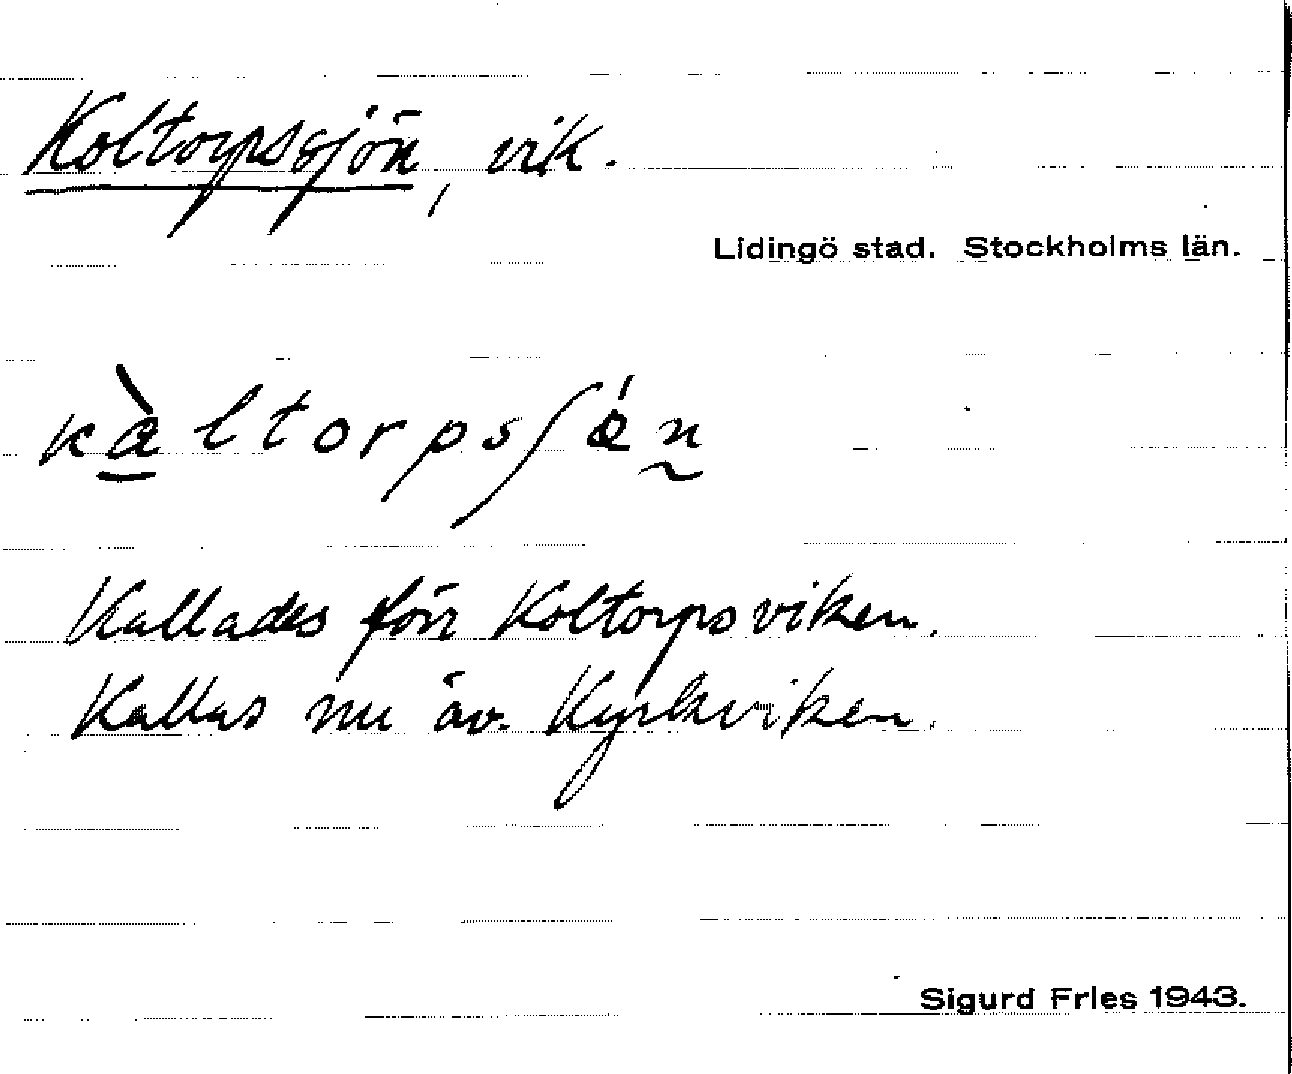 Koltorpssjön, vik.
Lidingö stad. Stockholms län.
kàltorpsʃǿn
Kallades förr Koltorpsviken.
Kallas nu äv. Kyrkviken.
Sigurd Fries 1943.